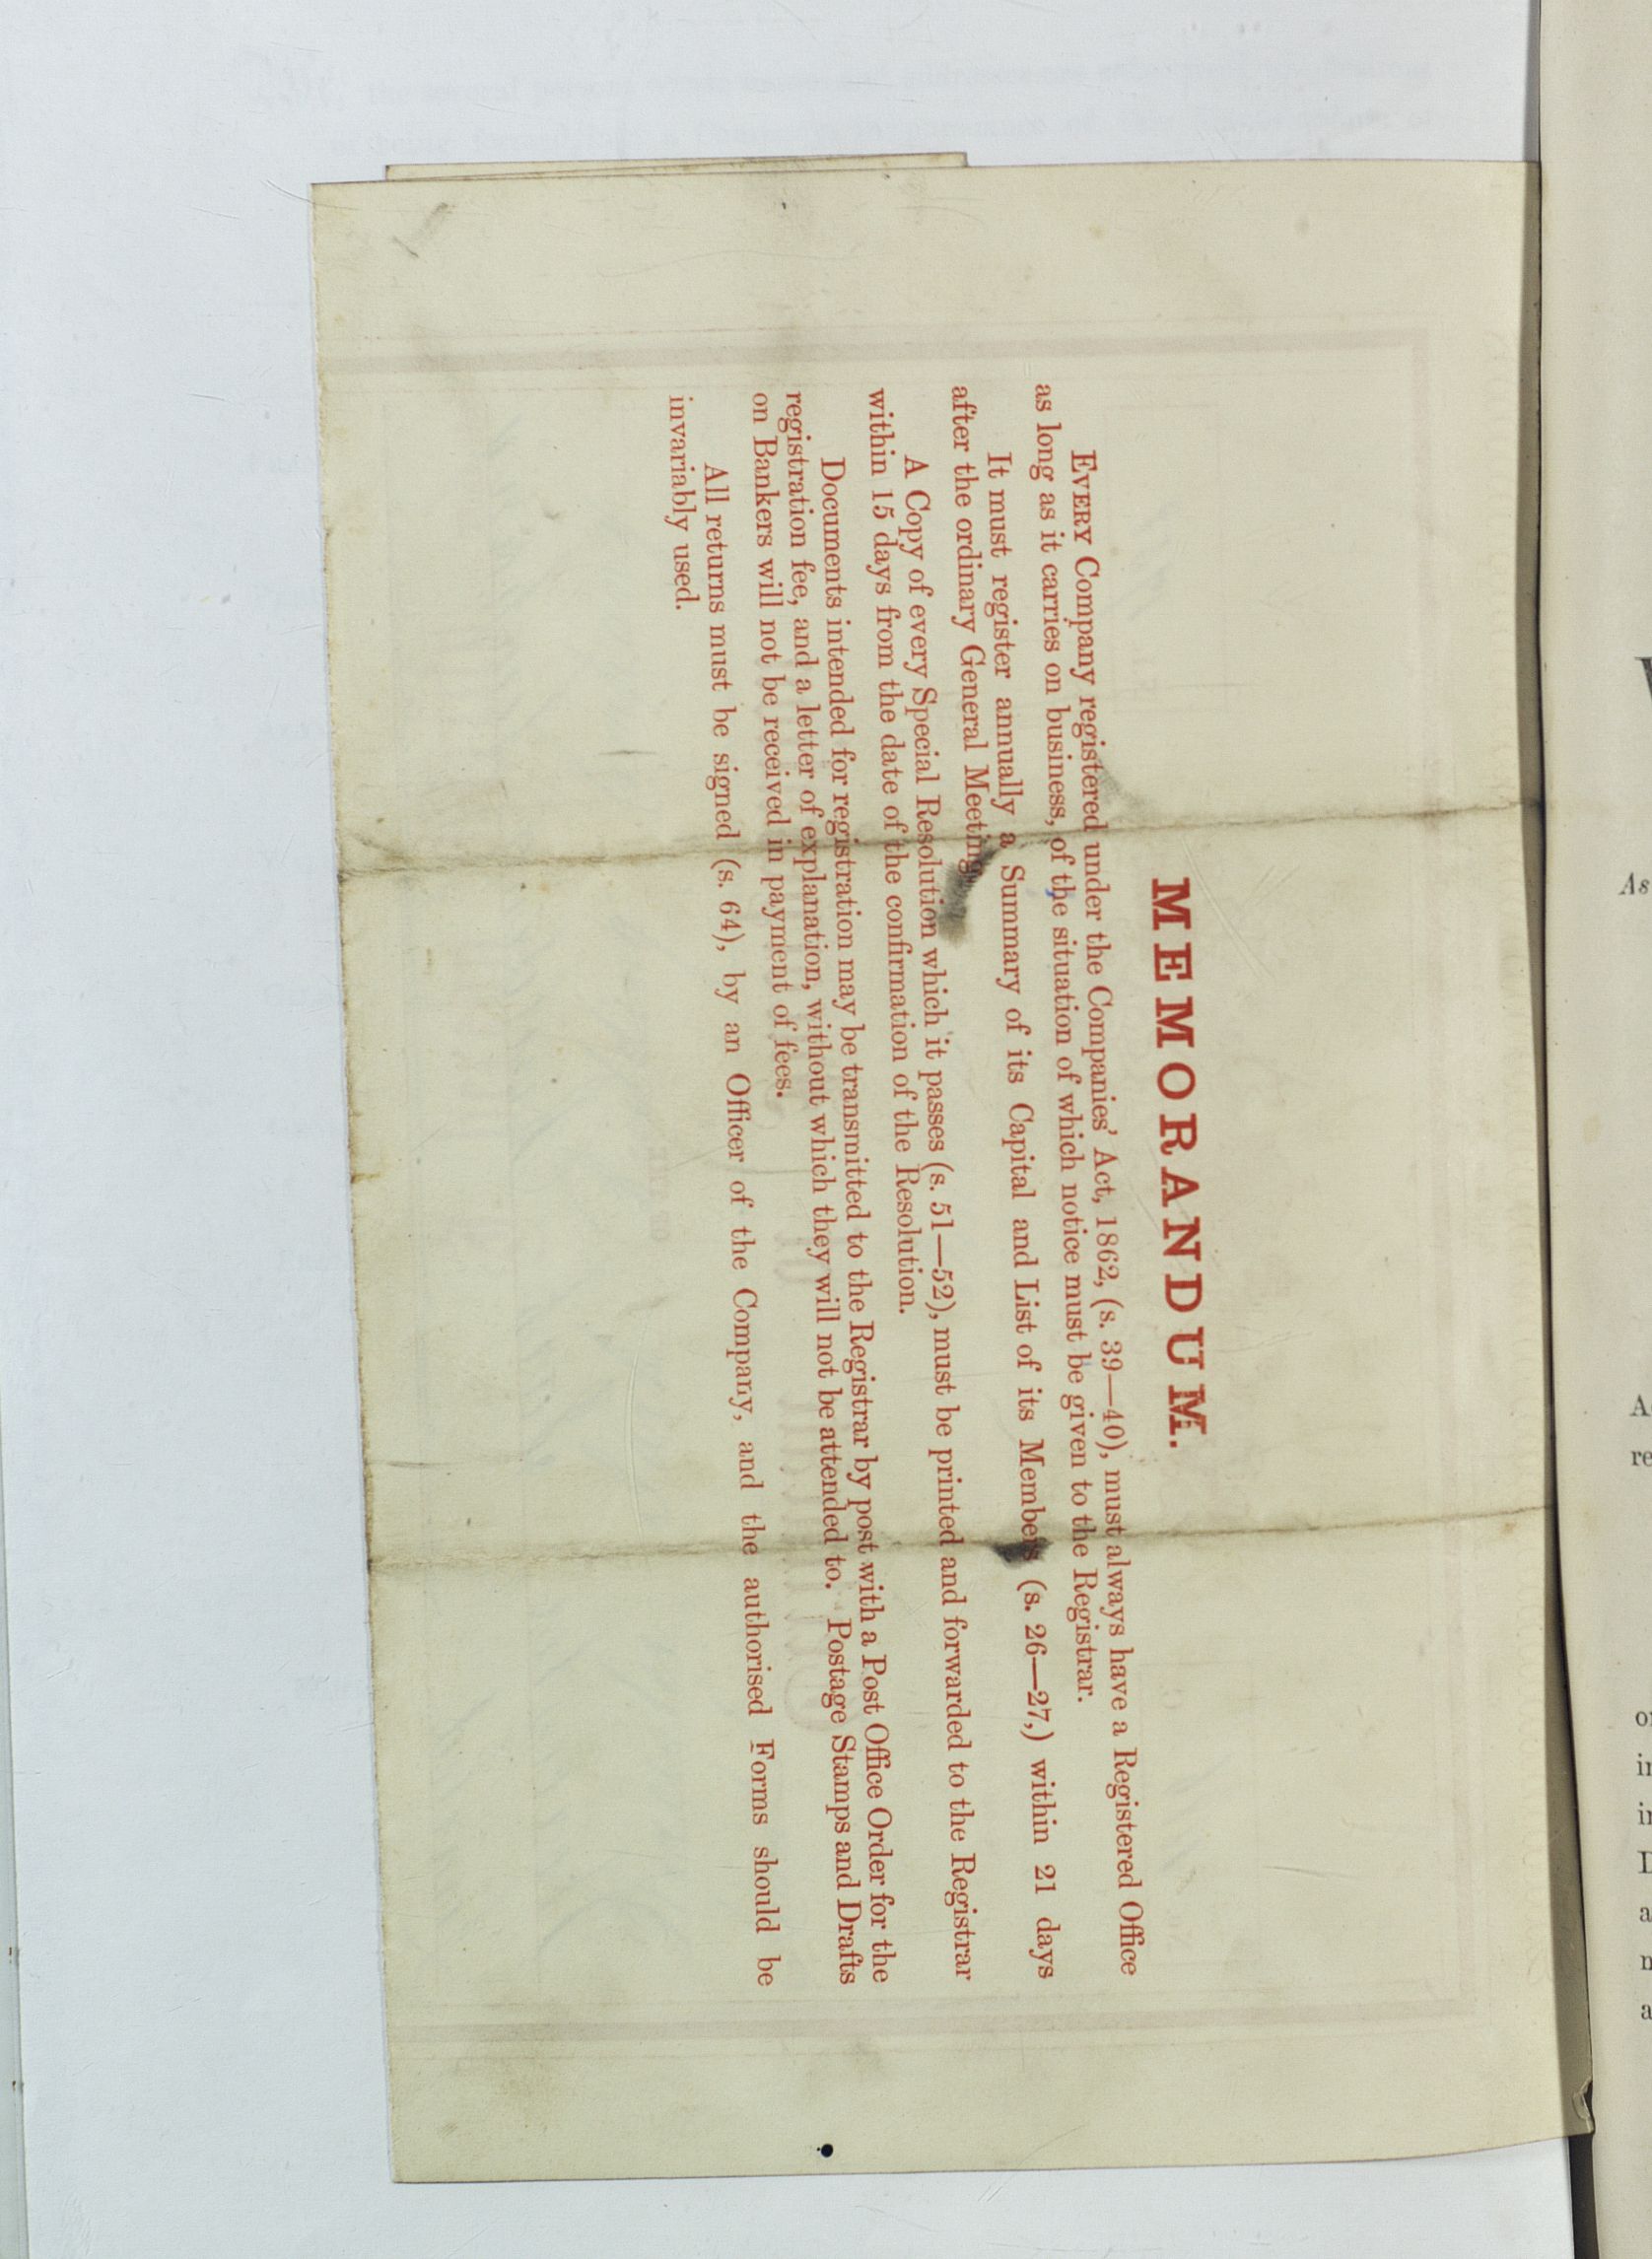 MEMORANDUM.
EVERY Company registered under the Companies' Act, 1862, (s. 39—40), must always have a Registered Office
as long as it carries on business, of the situation of which notice must be given to the Registrar.
It must register annually a Summary of its Capital and List of its Members (s. 26—27,) within 21 days
after the ordinary General Meeting.
A Copy of every Special Resolution which it passes (s. 51—52), must be printed and forwarded to the Registrar
within 15 days from the date of the confirmation of the Resolution.
Documents intended for registration may be transmitted to the Registrar by post with a Post Office Order for the
registration fee, and a letter of explanation, without which they will not be attended to. Postage Stamps and Drafts
on Bankers will not be received in payment of fees.
All returns must be signed (s. 64), by an Officer of the Company, and the authorised Forms should be
invariably used.
As
re